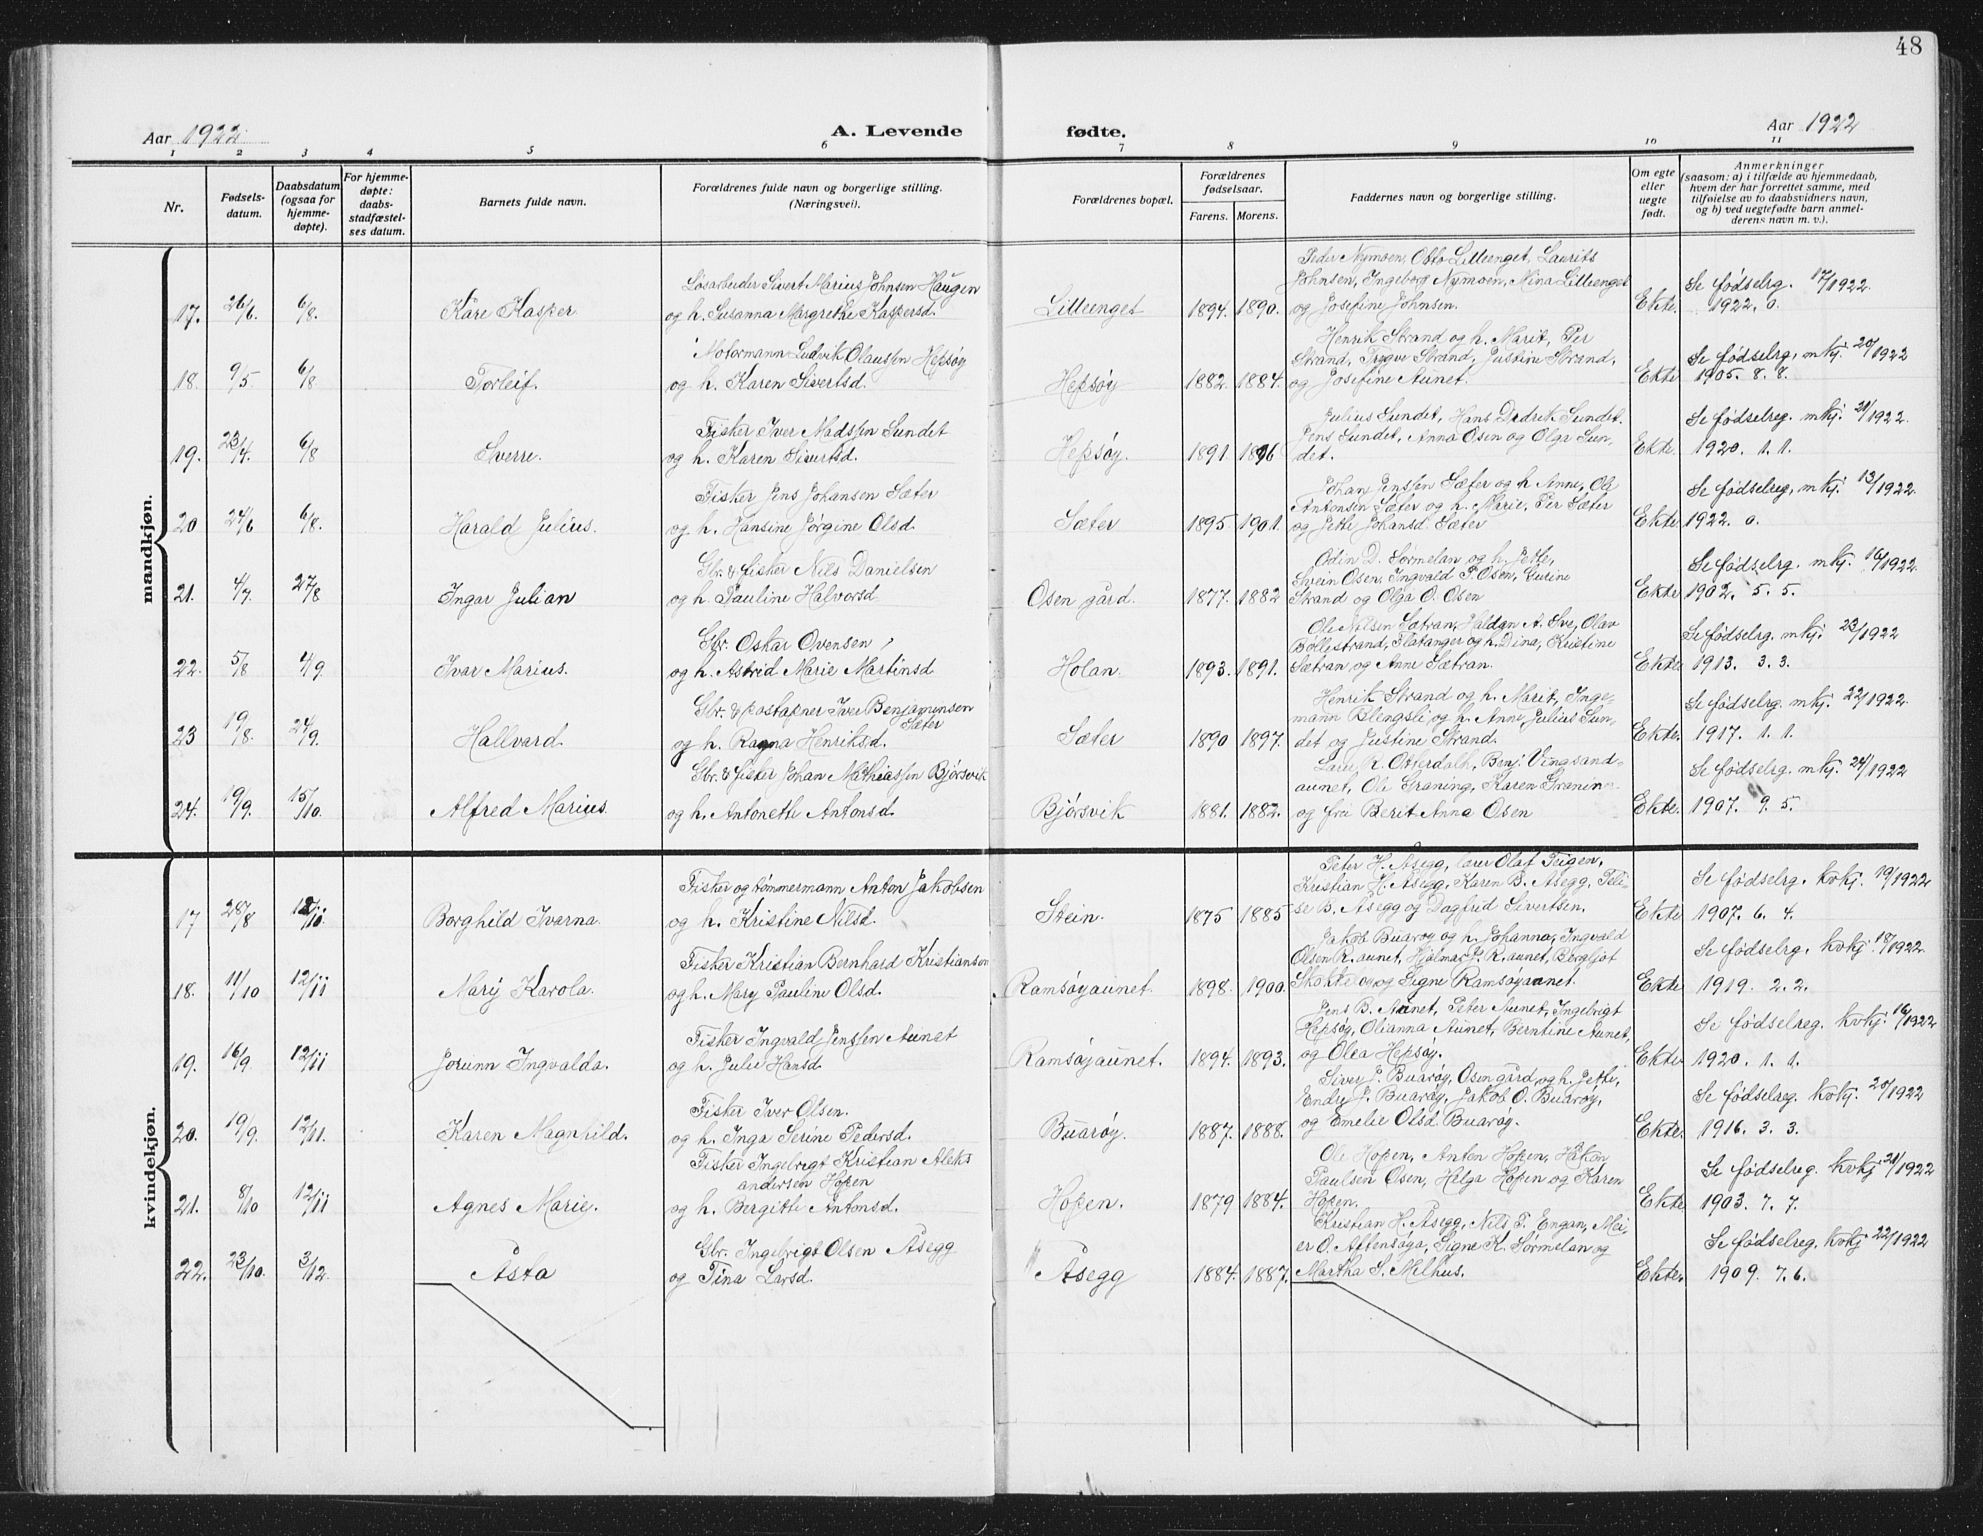 48
Aar 1922
A. Levende
fødte.
Aar 1922
1 2 3 4 5 6 7 8 9 10 11
Nr.
Fødsels-
datum.
Daabsdatum
(ogsaa for
hjemme-
døpte).
For hjemme-
døpte:
daabs-
stadfæstel-
ses datum.
Barnets fulde navn.
Forældrenes fulde navn og borgerlige stilling.
(Næringsvei).
Forældrenes bopæl.
Forældrenes
fødselsaar.
Farens. Morens.
Faddernes navn og borgerlige stilling.
Om egte
eller
uegte
født.
Anmerkninger
(saasom: a) i tilfælde av hjemmedaab,
hvem der har forrettet samme, med
tilføielse av to daabsvidners navn,
og b) ved uegtefødte barn anmel-
derens navn m. v.).
mandkjøn.
17. 26/6. 6/8. Kåre Kasper.
Løsarbeider Sivert Marius Johnsen Haugen
og h. Susanna Margrethe Kaspersd.
Lilleenget 1894. 1890.
Peder Nymoen, Otto Lilleenget, Laurits
Johnsen, Ingeborg Nymoen, Nina Lilleenget
og Josefine Johnsen.
Ekte.
Se fødselrg. 17/1922.
1922. 0.
18. 9/5. 6/8 Torleif.
Motormann Ludvik Olaussen Hepsøy
og h. Karen Sivertsd.
Hepsøy 1882. 1884.
Henrik Strand og h. Marit, Per
Strand, Trygve Strand, Justine Strand,
og Josefine Aunet.
Ekte
Se fødselrg. mkj. 20/1922
1905. 8. 8.
19. 23/4. 6/8 Sverre.
Fisker Iver Madssen Sundet
og h. Karen Sivertsd.
Hepsøy. 1891. 1896
Julius Sundet, Hans Dedrik Sundet.
Jens Sundet, Anna Osen og Olga Sun-
det.
Ekte.
Se fødselreg. mkj. 21/1922.
1920. 1. 1.
20 24/6 6/8. Harald Julius.
Fisker Jens Johansen Sæter
og h. Hansine Jørgine Olsd.
Sæter 1895. 1901.
Johan Jenssen Sæter og h. Anne, Ole
Antonsen Sæter og h. Marie, Per Sæter
og Jette Johansd. Sæter
Ekte
Se fødselreg. mkj. 13/1922.
1922. 0.
21. 4/7. 27/8 Ingar Julian
Gbr. & fisker Nils Danielsen
og h. Pauline Halvorsd.
Osen gård. 1877. 1882
Odin D. Sørmelan og h. Jette,
Svein Osen, Ingvald P. Osen, Gurine
Strand og Olga O. Osen
Ekte
Se fødselrg. mkj. 16/1922.
1902. 5. 5.
22. 5/8 4/9. Ivar Marius.
Gbr. Oskar Ovensen
og h. Astrid Marie Martinsd
Holan. 1893. 1891.
Ole Nilsen Sætran, Haldan A. Sve, Olav
Bøllestrand, Flatanger og h. Dina, Kristine
Sætran og Anne Sætran.
Ekte.
Se fødselrg. mkj. 23/1922
1913. 3. 3.
23 19/8. 24/9. Hallvard.
Gbr. & poståpner Iver Benjaminsen
Sæter
og h. Ragna Henriksd.
Sæter 1890 1897.
Henrik Strand og h. Marit, Inge-
mann Blengsli og h. Anne, Julius Sun-
det og Justine Strand.
Ekte.
Se fødselrg. mkj. 22/1922.
1917. 1. 1.
24. 19/9. 15/10. Alfred Marius.
Gbr. & fisker Johan Mathiassen Bjørsvik
og h. Antonette Antonsd.
Bjørsvik 1881. 1882.
Lars R. Otterdalh, Benj. Vingsand-
aunet, Ole Graning, Karen Graning
og frøi Berit Anna Osen
Ekte.
Se fødselrg. mkj. 24/1922
1907. 9. 5.
kvindekjøn.
17 28/8 Borghild Ivarna.
Fisker og tømmermann Anton Jakobsen
og h. Kristine Nilsd.
Stein. 1875 1885
Peter H. Åsegg, lærer Olaf Teigen,
Kristian H. Åsegg, Karen B. Åsegg, Peli-
se B. Åsegg og Dagfrid Sivertsen.
Ekte
Se fødselrg. kvkj. 19/1922
1907. 6. 4.
18. 11/10 12/11 Mary Karola.
Fisker Kristian Bernhard Kristiansen
og h. Mary Pauline Olsd.
Ramsøyaunet. 1898. 1900.
Jakob Buarøy og h. Johanna, Ingvald
Olsen R.aunet, Hjalmar J. R.aunet, Bergljot
og Signe Ramsøyaunet.
Ekte
Se fødselrg. kvkj. 18/1922.
1919. 2. 2.
19. 16/9. 12/11 Jorunn Ingvalda.
Fisker Ingvald Jenssen Aunet
og h. Julie Hansd.
Ramsøyaunet. 1894. 1893.
Jens B. Aunet, Peter Aunet, Ingebrigt
Hepsøy, Olianna Aunet, Berntine Aunet,
og Olea Hepsøy.
Ekte.
Se fødselreg. kvkj. 16/1922
1920. 1. 1.
20. 19/9. 12/11. Karen Magnhild.
Fisker Iver Olsen.
og h. Inga Serine Pedersd.
Buarøy. 1887. 1888.
Siver J. Buarøy, Osen gård og h. Jette,
Endre J. Buarøy, Jakob O. Buarøy,
og Emelie Olsd. Buarøy.
Ekte.
Se fødselreg. kvkj. 20/1922
1916. 3. 3.
21. 8/10 12/11 Agnes Marie.
Fisker Ingebrigt Kristian Aleks
andersen Hopen
og h. Bergitte Antonsd.
Hopen. 1879 1884.
Ole Hopen, Anton Hopen, Håkon
Paulsen Osen, Helga Hopen og Karen
Hopen.
Ekte
Se fødselreg. kvkj 21/1922
1903. 7. 7.
22. 23/10. 3/12. Åsta
Gbr. Ingebrigt Olsen Åsegg
og Tina Larsd.
Åsegg 1884. 1887.
Kristian H. Åsegg, Nils P. Engan, Mei-
er O. Aftensøga, Signe K. Sørmelan og
Martha S. Melhus.
Ekte.
Se fødselreg. kvkj 22/1922
1909. 7. 6.